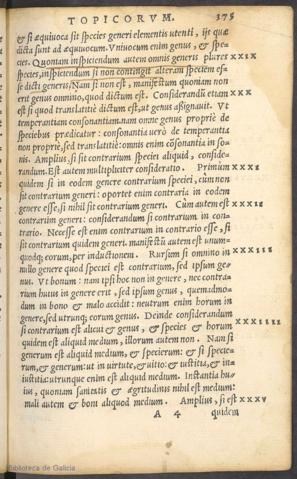 TOPICORVM. 375
& si æquiuoca sit species generi elementis utenti, ijs quæ
dicta sunt ad æquiuocum. Vniuocum enim genus, & spe-
ciei. Quoniam inspiciendum autem omnis generis plures XXIX
species, inspiciendum si non contingit alteram speciem es-
se dicti generis: Nam si non est, manifestum quoniam non
erit genus omnino, quod dictum est. Considerandũ etiam XXX
est si quod translatitiè dictum est, ut genus assignauit. Vt
temperantiam consonantiam. nam omne genus propriè de
speciebus prædicatur: consonantia uerò de temperantia
non propriè, sed translatitiè: omnis enim cõsonantia in so-
nis. Amplius, si sit contrarium species aliquid, conside-
randum. Est autem multipliciter consideratio. Primùm XXXI
quidem si in eodem genere contrarium speciei, cùm non
sit contrarium generi: oportet enim contraria in eodem
genere esse, si nihil sit contrarium generi. Cùm autem est XXXII
contrarium generi: considerandum si contrarium in con-
trario. Necesse est enim contrarium in contrario esse, si
sit contrarium quidem generi. manifestũ autem est unum-
quodq; eorum, per inductionem. Rursum si omnino in XXXIII
nullo genere quod speciei est contrarium, sed ipsum ge-
nus. Vt bonum: nam ipsi hoc non in genere, nec contra-
rium huius in genere erit, sed ipsum genus, quemadmo-
dum in bono & malo accidit: neutrum enim horum in
genere, sed utrunq; eorum genus. Deinde considerandum
si contrarium est alicui & genus, & species & horum XXXIIII
quidem est aliquid medium, illorum autem non. Nam si
generum est aliquid medium, & specierum: & si specie-
rum, & generum: ut in uirtute, & uitio: & iustitia, & in-
iustitia: utrunque enim est aliquid medium. Instantia hu-
ius, quoniam sanitatis & ægritudinis nihil est medium:
mali autem & boni aliquod medium. Amplius, si est XXXV
A 4 quidem
Biblioteca de Galicia